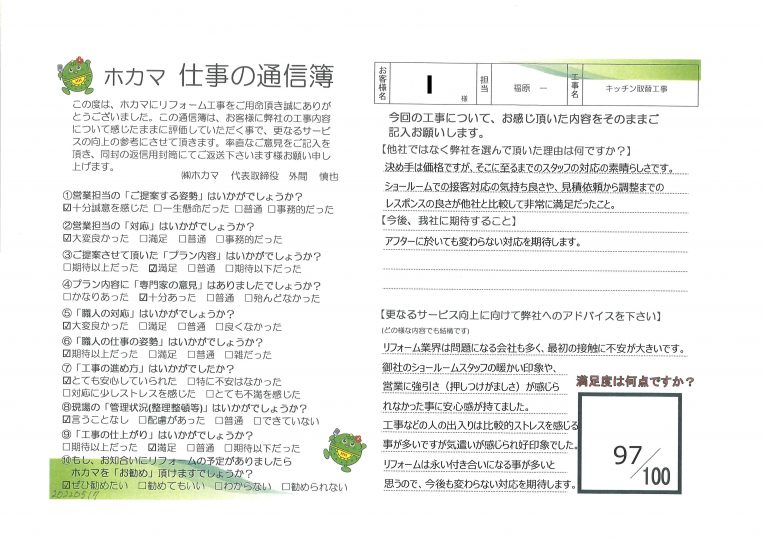 ホカマ 仕事の通信簿
この度は、ホカマにリフォーム工事をご用命頂き誠にありが
とうございました。この通信簿は、お客様に弊社の工事内容
について感じたままに評価していただく事で、更なるサービ
スの向上の参考にさせて頂きます。率直なご意見をご記入を
頂き、同封の返信用封筒にてご返送下さいます様お願い申し
上げます。
㈱ホカマ 代表取締役 外間 慎也
①営業担当の「ご提案する姿勢」はいかがでしょうか?
☑十分誠意を感じた □一生懸命だった □普通 □事務的だった
②営業担当の「対応」はいかがでしょうか?
☑大変良かった □満足 □普通 □事務的だった
③ご提案させて頂いた「プラン内容」はいかがでしょうか?
□期待以上だった ☑満足 □普通 □期待以下だった
④プラン内容に「専門家の意見」はありましたでしょうか?
□かなりあった ☑十分あった □普通 □殆んどなかった
⑤「職人の対応」はいかがでしょうか?
☑大変良かった □満足 □普通 □良くなかった
⑥「職人の仕事の姿勢」はいかがでしょうか?
☑期待以上だった □満足 □普通 □雑だった
⑦「工事の進め方」はいかがでしたか?
☑とても安心していられた □特に不安はなかった
□対応に少しストレスを感じた □とても不満を感じた
⑧現場の「管理状況(整理整頓等)」はいかがでしょうか?
☑言うことなし □配慮があった □普通 □できていない
⑨「工事の仕上がり」はいかがでしょうか?
□期待以上だった ☑満足 □普通 □期待以下だった
⑩もし、お知合いにリフォームの予定がありましたら
ホカマを「お勧め」頂けますでしょうか?
☑ぜひ勧めたい □勧めてもいい □わからない □勧められない
20220517
お客様名 I 様 担当 福原 一 工事名 キッチン取替工事
今回の工事について、お感じ頂いた内容をそのままご
記入お願いします。
【他社ではなく弊社を選んで頂いた理由は何ですか?】
決め手は価格ですが、そこに至るまでのスタッフの対応の素晴らしさです。
ショールームでの接客対応の気持ち良さや、見積依頼から調整までの
レスポンスの良さが他社と比較して非常に満足だったこと。
【今後、我社に期待すること】
アフターに於いても変わらない対応を期待します。
【更なるサービス向上に向けて弊社へのアドバイスを下さい】
(どの様な内容でも結構です)
リフォーム業界は問題になる会社も多く、最初の接触に不安が大きいです。
御社のショールームスタッフの暖かい印象や、
営業に強引さ(押しつけがましさ)が感じら
れなかった事に安心感が持てました。
工事などの人の出入りは比較的ストレスを感じる
事が多いですが気遣いが感じられ好印象でした。
リフォームは永い付き合いになる事が多いと
思うので、今後も変わらない対応を期待します。
満足度は何点ですか?
97/100